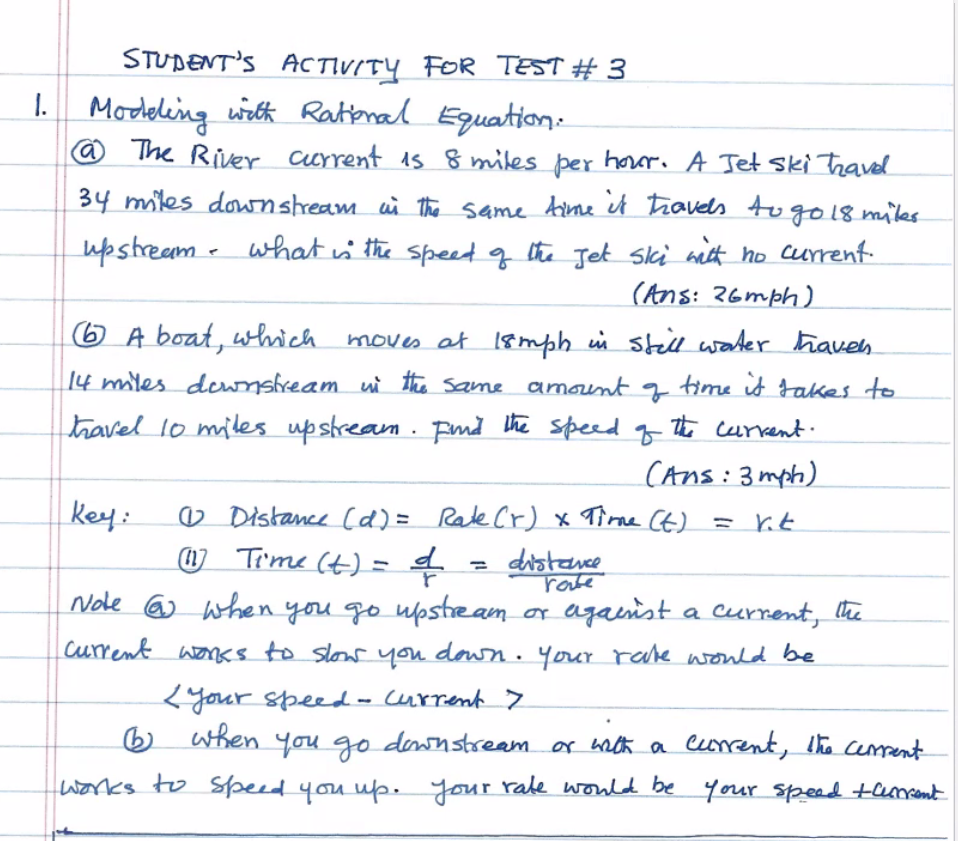 STUDENT'S ACTIVITY FOR TEST # 3
1. Modeling with Rational Equation:
ⓐ The River current is 8 miles per hour. A Jet ski travel
34 miles downstream in the same time it travels to go 18 miles
upstream. what is the speed of the Jet ski with no current.
(Ans: 26mph)
ⓑ A boat, which moves at 18mph in still water travels
14 miles downstream in the same amount of time it takes to
travel 10 miles upstream. Find the speed of the current.
(Ans: 3 mph)
Key: (I) Distance (d) = Rate (r) x Time (t) = r.t
(II) Time (t) = d/r = distance/rate
Note ⓐ when you go upstream or against a current, the
current works to slow you down. your rate would be
<your speed - current >
ⓑ when you go downstream or with a current, the current
works to speed you up. your rate would be your speed + current